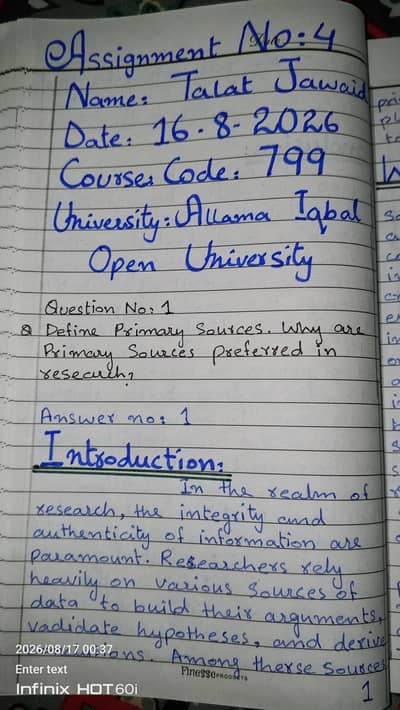 Assignment No: 4
Name: Talat Jawaid
Date: 16-8-2026
Course Code: 799
University: Allama Iqbal
Open University
Question No: 1
Q Define Primary Sources. Why are
Primary Sources preferred in
research?
Answer no: 1
Introduction:
In the realm of
research, the integrity and
authenticity of information are
paramount. Researchers rely
heavily on various sources of
data to build their arguments,
vadidate hypotheses, and derive
Among therse sources
2026/08/17 00:37
Enter text
Infinix HOT 60i
Finesse PRODUCTS
1